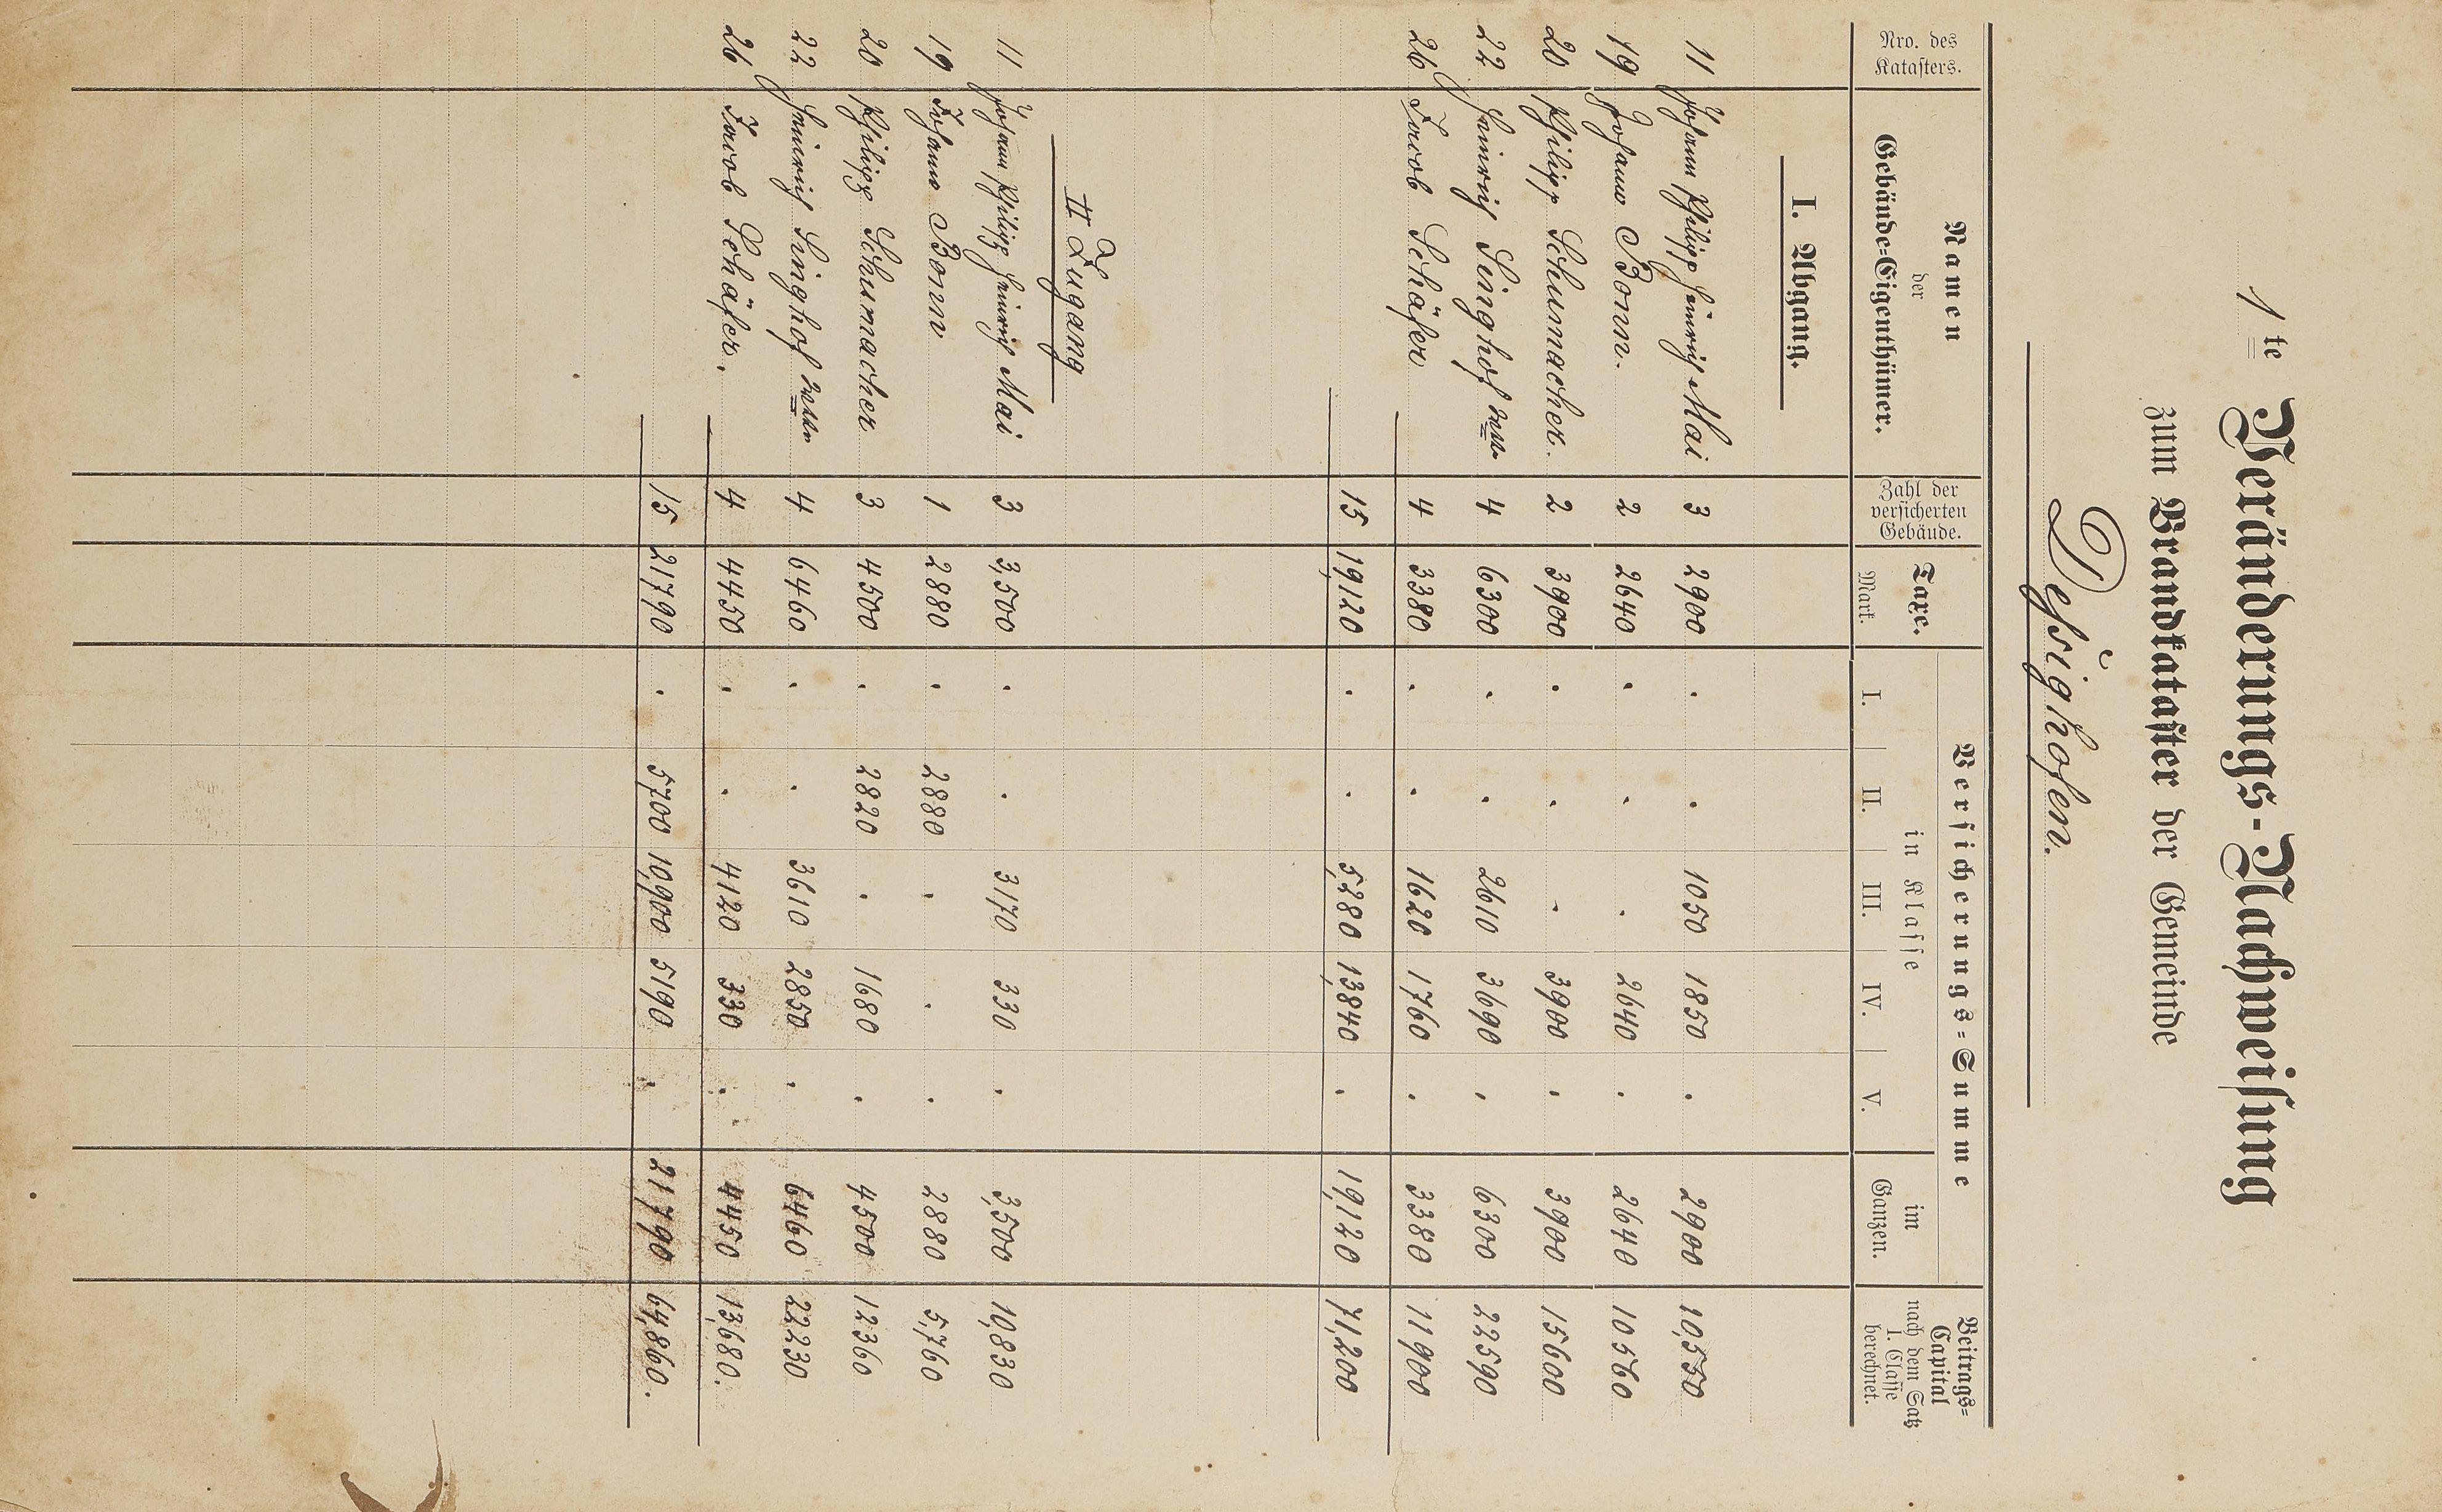 1te Veränderungs-Nachweisung
zum Brandkataster der Gemeinde
Dessighofen.
Nro. des Katasters. | Namen der Gebäude-Eigenthümer. | Zahl der versicherten Gebäude. | Taxe. Mark. | Versicherungs-Summe in Klasse I. | II. | III. | IV. | V. | im Ganzen. | Beitrags-Capital nach dem Satz I. Classe berechnet.
I. Abgang.
11 Johann Philipp Heinrich Mai 3 2900 . . 1050 1850 . 2900 10,550
19 Johann Bonn. 2 2640 . . . 2640 . 2640 10560
20 Philipp Schumacher. 2 3900 . . . 3900 . 3900 15600
22 Heinrich Singhof 4 6300 . . 2610 3690 . 6300 22590
26 Jacob Schäfer 4 3380 . . 1620 1760 . 3380 11900
15 19,120 . . 5,280 13,840 . 19,120 71,200
II Zugang
11 Johann Philipp Heinrich Mai 3 3,500 . . 3170 330 . 3,500 10,830
19 Johann Bonn 1 2880 . 2880 . . . 2880 5,760
20 Philipp Schumacher 3 4500 . 2820 . 1680 . 4500 12360
22 Heinrich Singhof 4 6460 . . 3610 2850 . 6460 22230
26 Jacob Schäfer. 4 4450 . . 4120 330 . 4450 13,680.
15 21790 . 5,700 10,900 5190 . 21,790 64,860.